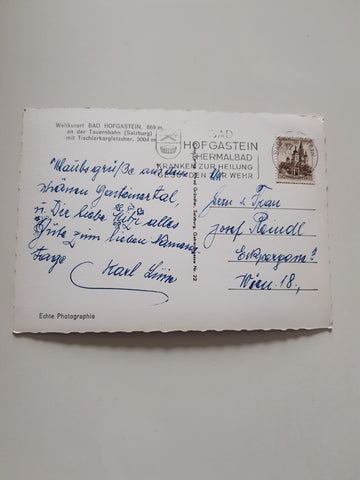 Weltkurort BAD HOFGASTEIN, 869 m
an der Tauernbahn (Salzburg)
mit Tischlerkargletscher, 3004 m
BAD
HOFGASTEIN
THERMALBAD
KRANKEN ZUR HEILUNG
GESUNDEN ZUR WEHR
Urlaubsgrüße aus dem
schönen Gasteinertal,
u. Dir lieber alles
Gute zum lieben Namens
tage
Karl
An
Herrn u. Frau
Josef
Wien 18.,
Echte Photographie